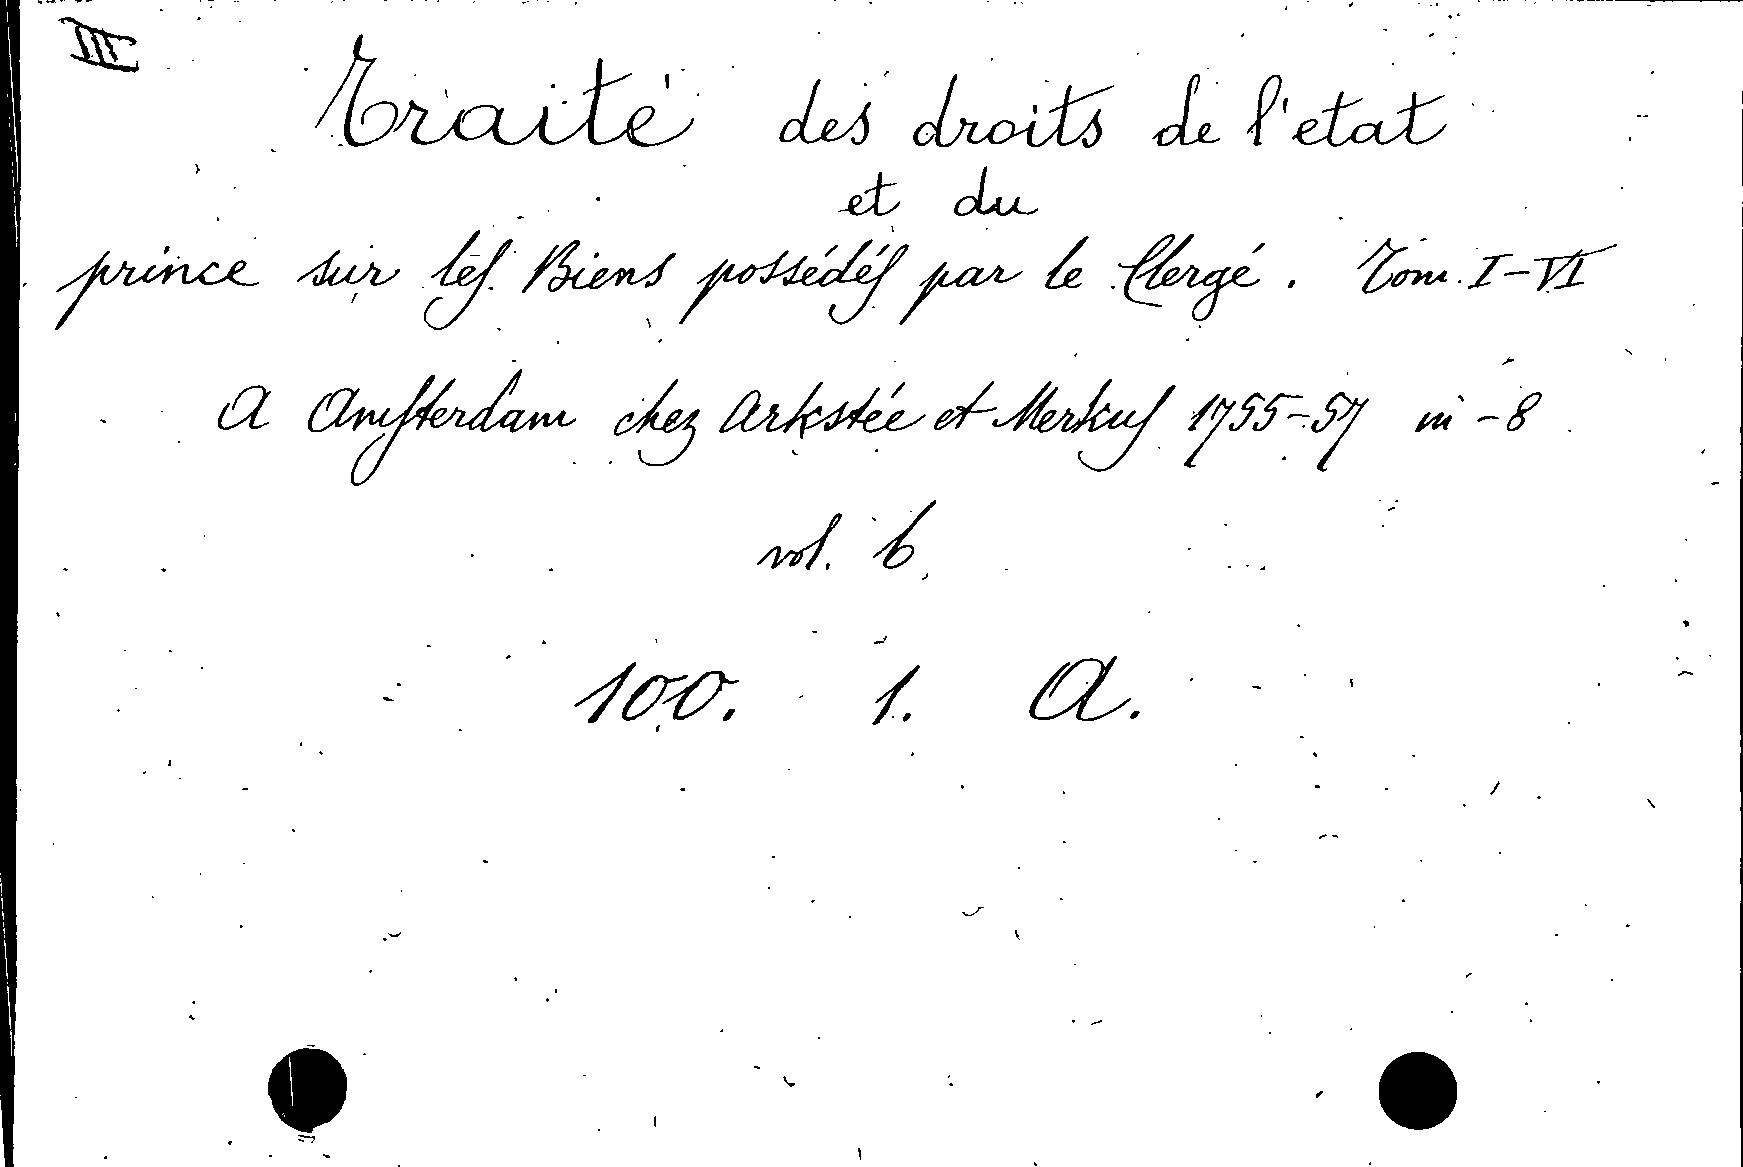 III
Traité des droits de l'etat
et du
prince sur les Biens possédés par le Clergé. Tom. I-VI
A Amsterdam chez Arkstée et Merkus 1755-57 in-8
vol. 6
100. 1. A.